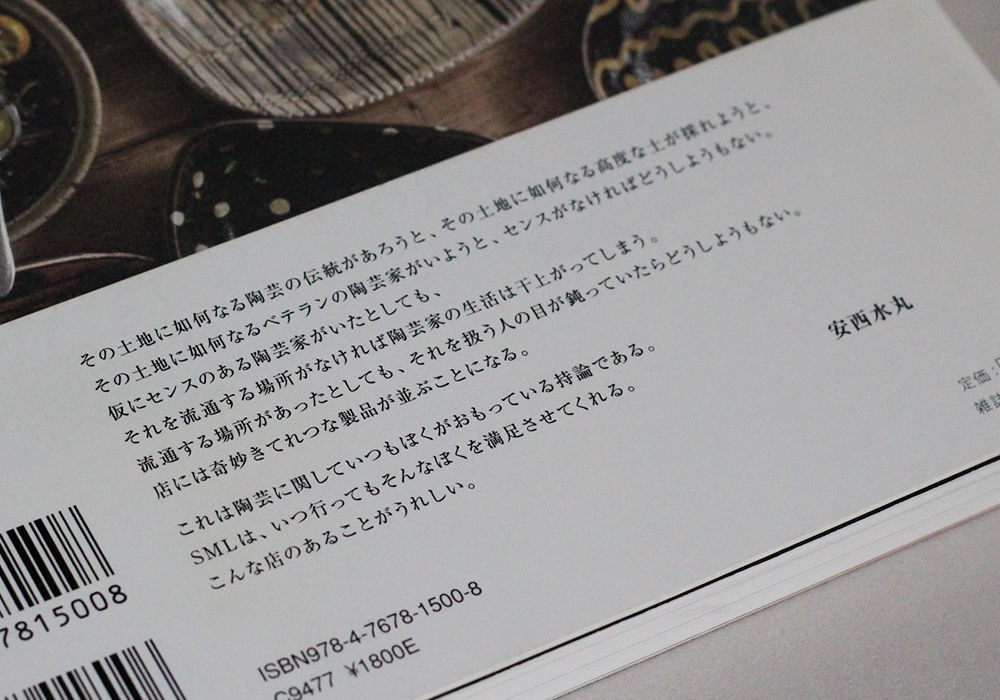 その土地に如何なる陶芸の伝統があろうと、その土地に如何なる高度な土が採れようと、
その土地に如何なるベテランの陶芸家がいようと、センスがなければどうしようもない。
仮にセンスのある陶芸家がいたとしても、
それを流通する場所がなければ陶芸家の生活は干上がってしまう。
流通する場所があったとしても、それを扱う人の目が鈍っていたらどうしようもない。
店には奇妙きてれつな製品が並ぶことになる。
これは陶芸に関していつもぼくがおもっている持論である。
SMLは、いつ行ってもそんなぼくを満足させてくれる。
こんな店のあることがうれしい。
安西水丸
定価:
雑誌
7815008
ISBN978-4-7678-1500-8
C9477 ¥1800E